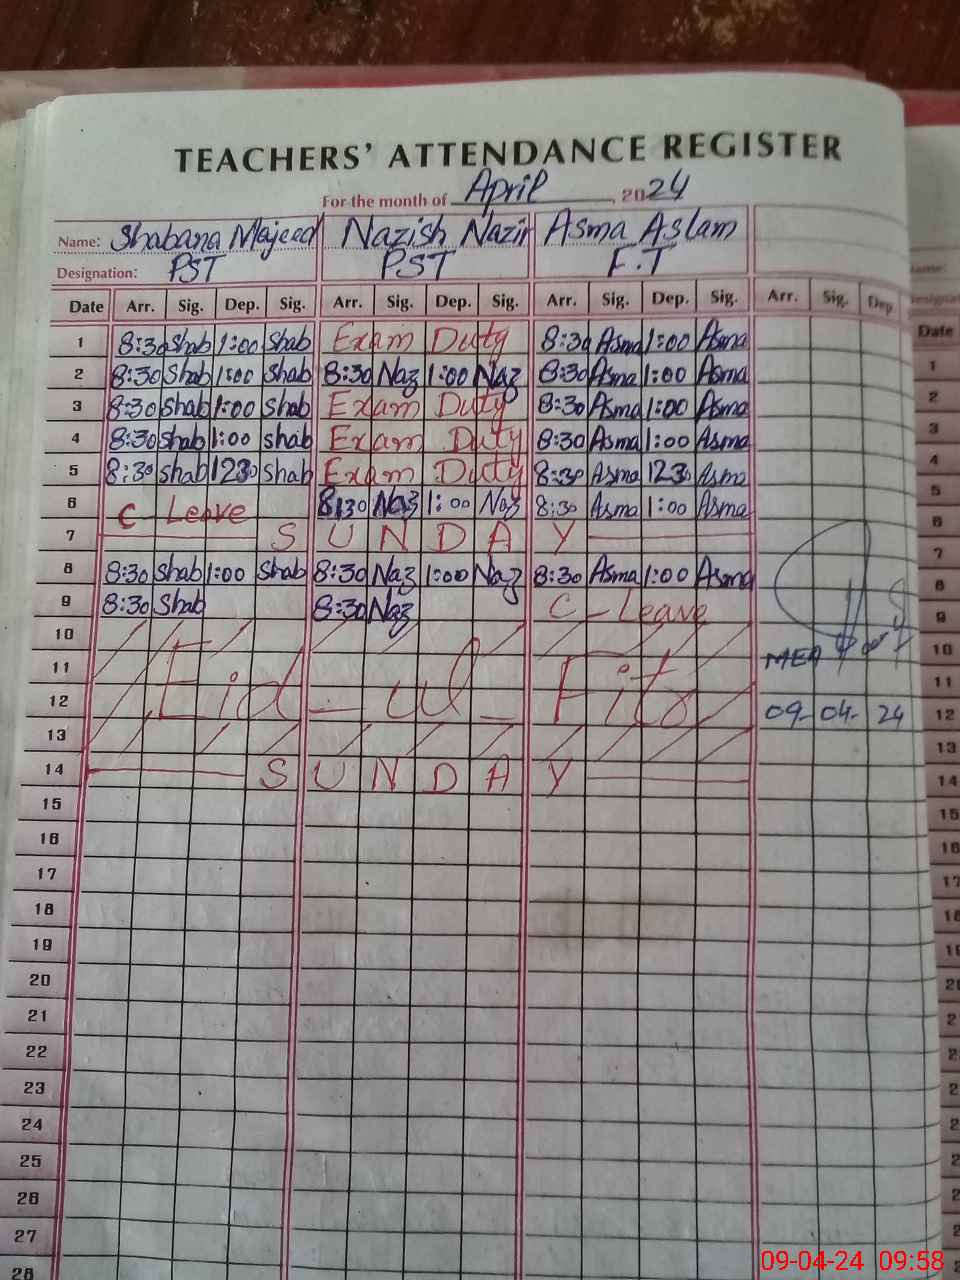 TEACHERS' ATTENDANCE REGISTER
For the month of April, 2024
Name: Shabana Majeed Nazish Nazir Asma Aslam
Designation: PST PST F.T
Date Arr. Sig. Dep. Sig. Arr. Sig. Dep. Sig. Arr. Sig. Dep. Sig. Arr. Sig. Dep
1 8:30 Shab 1:00 Shab Exam Duty 8:30 Asma 1:00 Asma
2 8:30 Shab 1:00 Shab 8:30 Naz 1:00 Naz 8:30 Asma 1:00 Asma
3 8:30 Shab 1:00 Shab Exam Duty 8:30 Asma 1:00 Asma
4 8:30 Shab 1:00 Shab Exam Duty 8:30 Asma 1:00 Asma
5 8:30 Shab 1230 Shab Exam Duty 8:30 Asma 1230 Asma
6 C Leave 8:30 Naz 1:00 Naz 8:30 Asma 1:00 Asma
7 SUNDAY
8 8:30 Shab 1:00 Shab 8:30 Naz 1:00 Naz 8:30 Asma 1:00 Asma
9 8:30 Shab 8:30 Naz C-Leave
10
11 Eid-ul-Fitr MEA
12 09-04-24
13
14 SUNDAY
15
16
17
18
19
20
21
22
23
24
25
26
27
28
Date
1
2
3
4
5
6
7
8
9
10
11
12
13
14
15
16
17
09-04-24 09:58